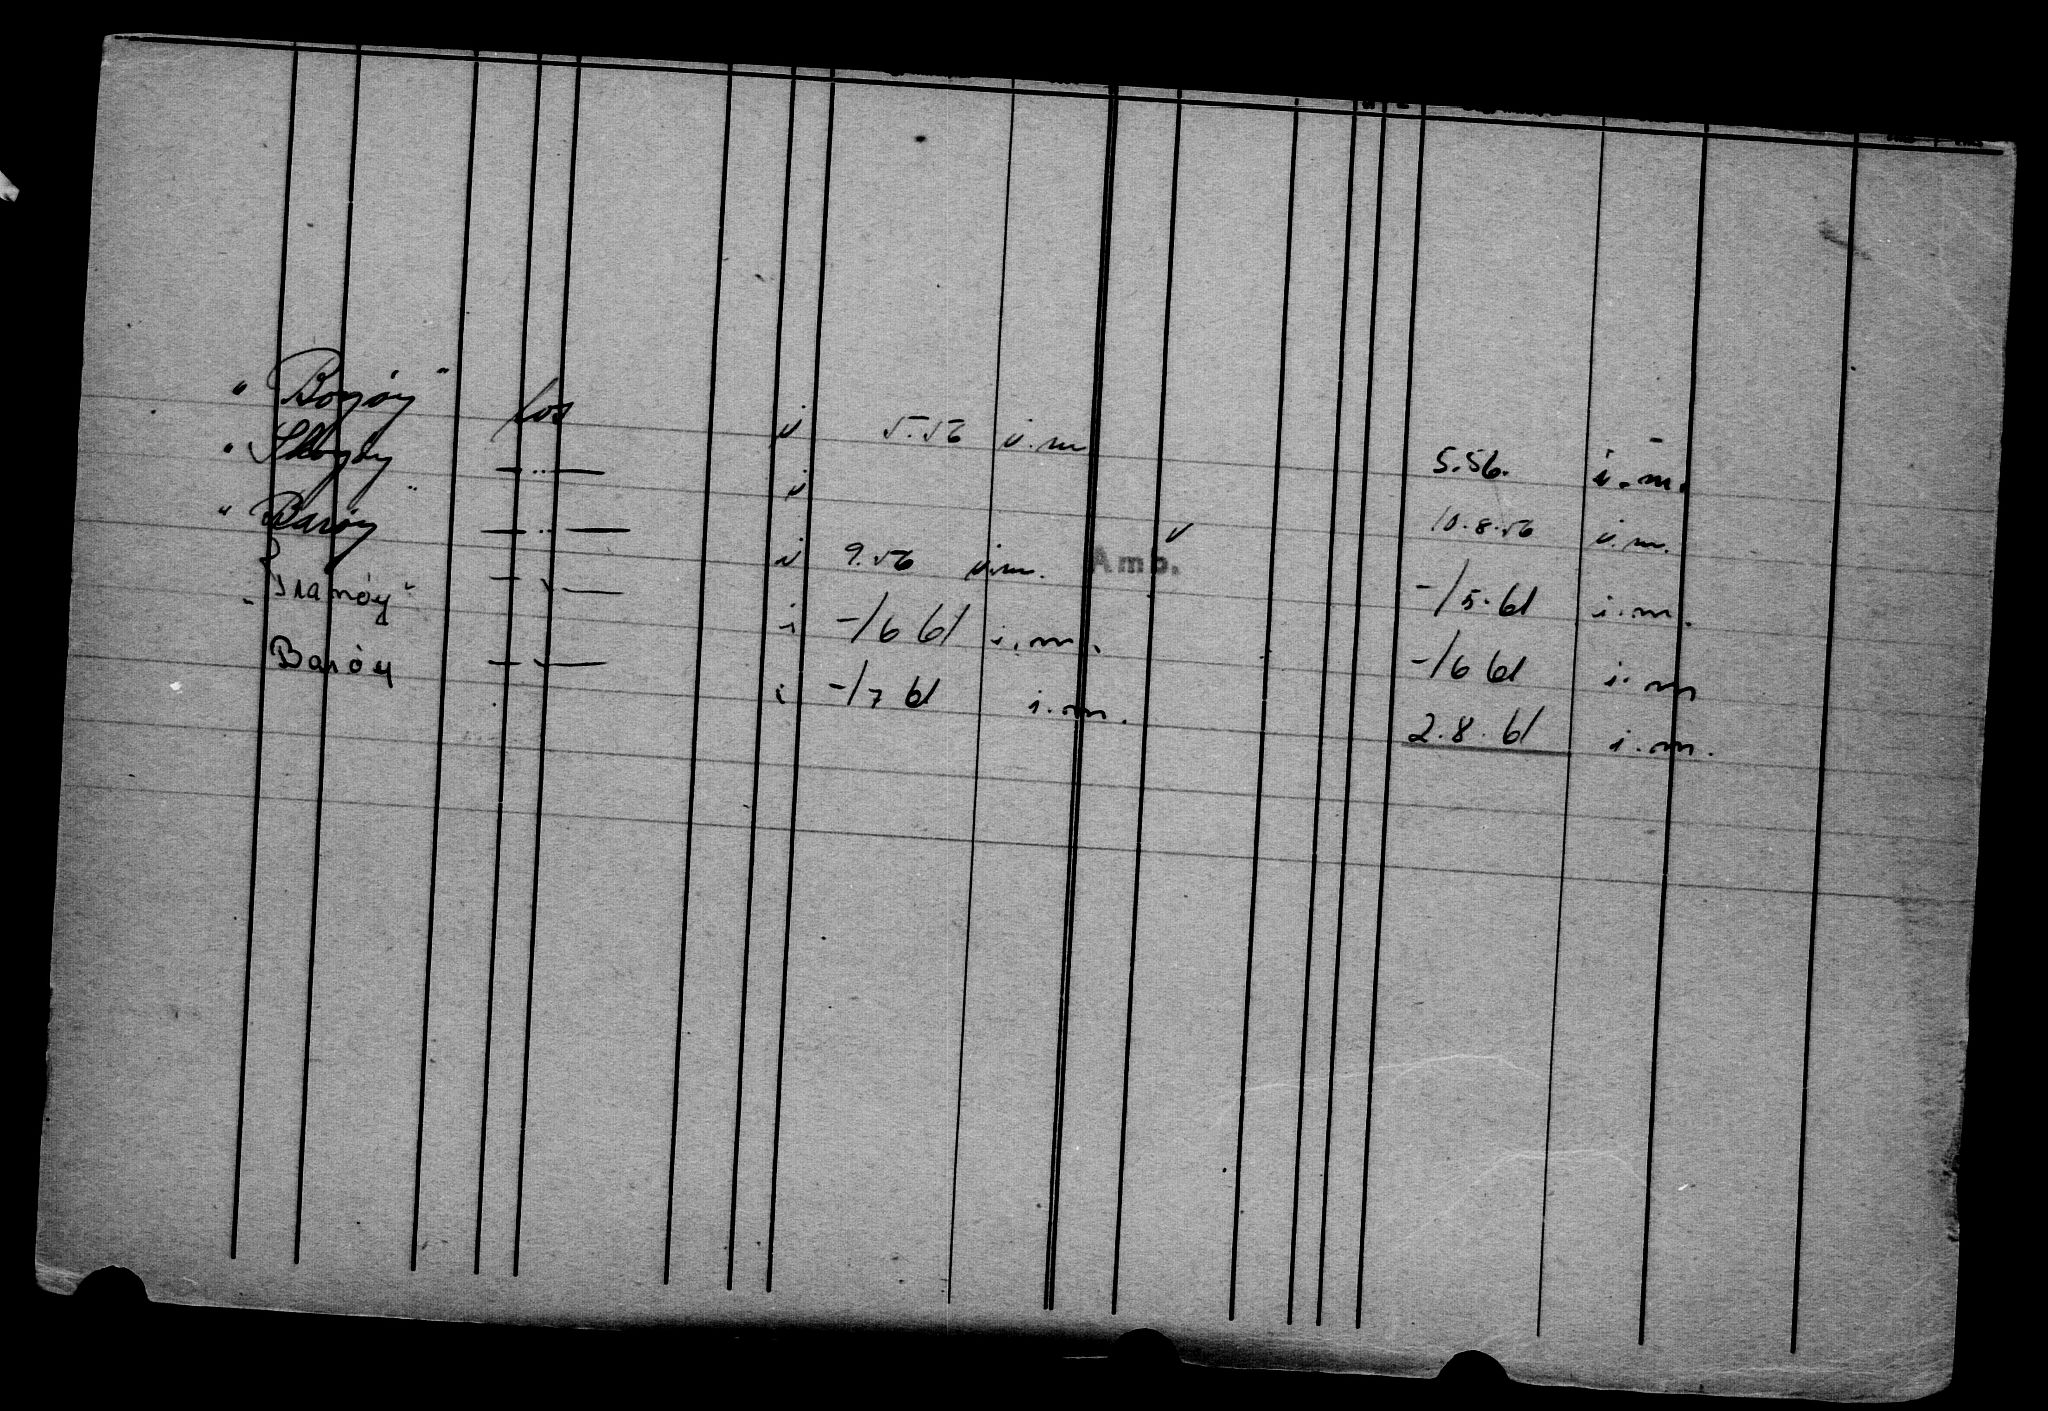 "Borgøy" los i 5.56 i.m 5.56. i.m.
"Skogøy" — " — i 10.8.56 i.m.
"Barøy" — " — i 9.56 i.m. Amb. i -/5.61 i.m.
"Tranøy" — " — i -/6 61 i.m. -/6 61 i.m
Barøy — " — i -/7 61 i.m. 2.8.61 i.m.